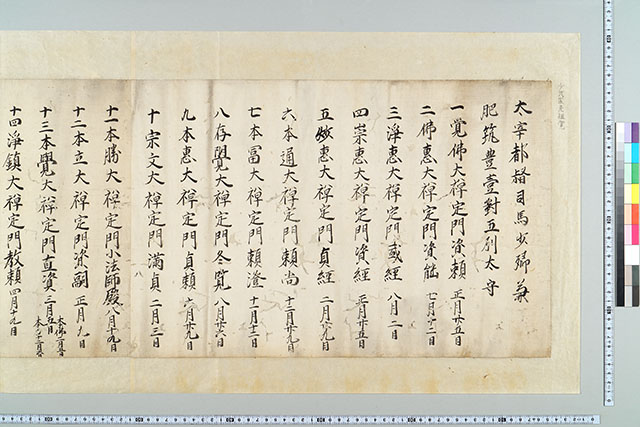 太宰都督司馬少卿兼
肥筑豊壹對五列太守
一覚佛大禅定門資頼 正月廿五日
二佛惠大禅定門資能 七月十二日
三淨惠大禅定門盛經 八月二日
四崇惠大禅定門資經 正月廿五日
五妙惠大禅定門貞經 二月廿九日
六本通大禅定門頼尚 十二月廿九日
七本冨大禅定門頼澄 十一月十二日
八存覺大禅定門冬覧 八月廿六日
九本惠大禅定門貞頼 六月廿九日
十宗文大禅定門滿貞 二月三日
十一本勝大禅定門小法師殿 八月十九日
十二本立大禅定門資嗣 正月九日
十三本覺大禅定門直資 三月五日
十四淨鎮大禅定門教頼 四月十九日